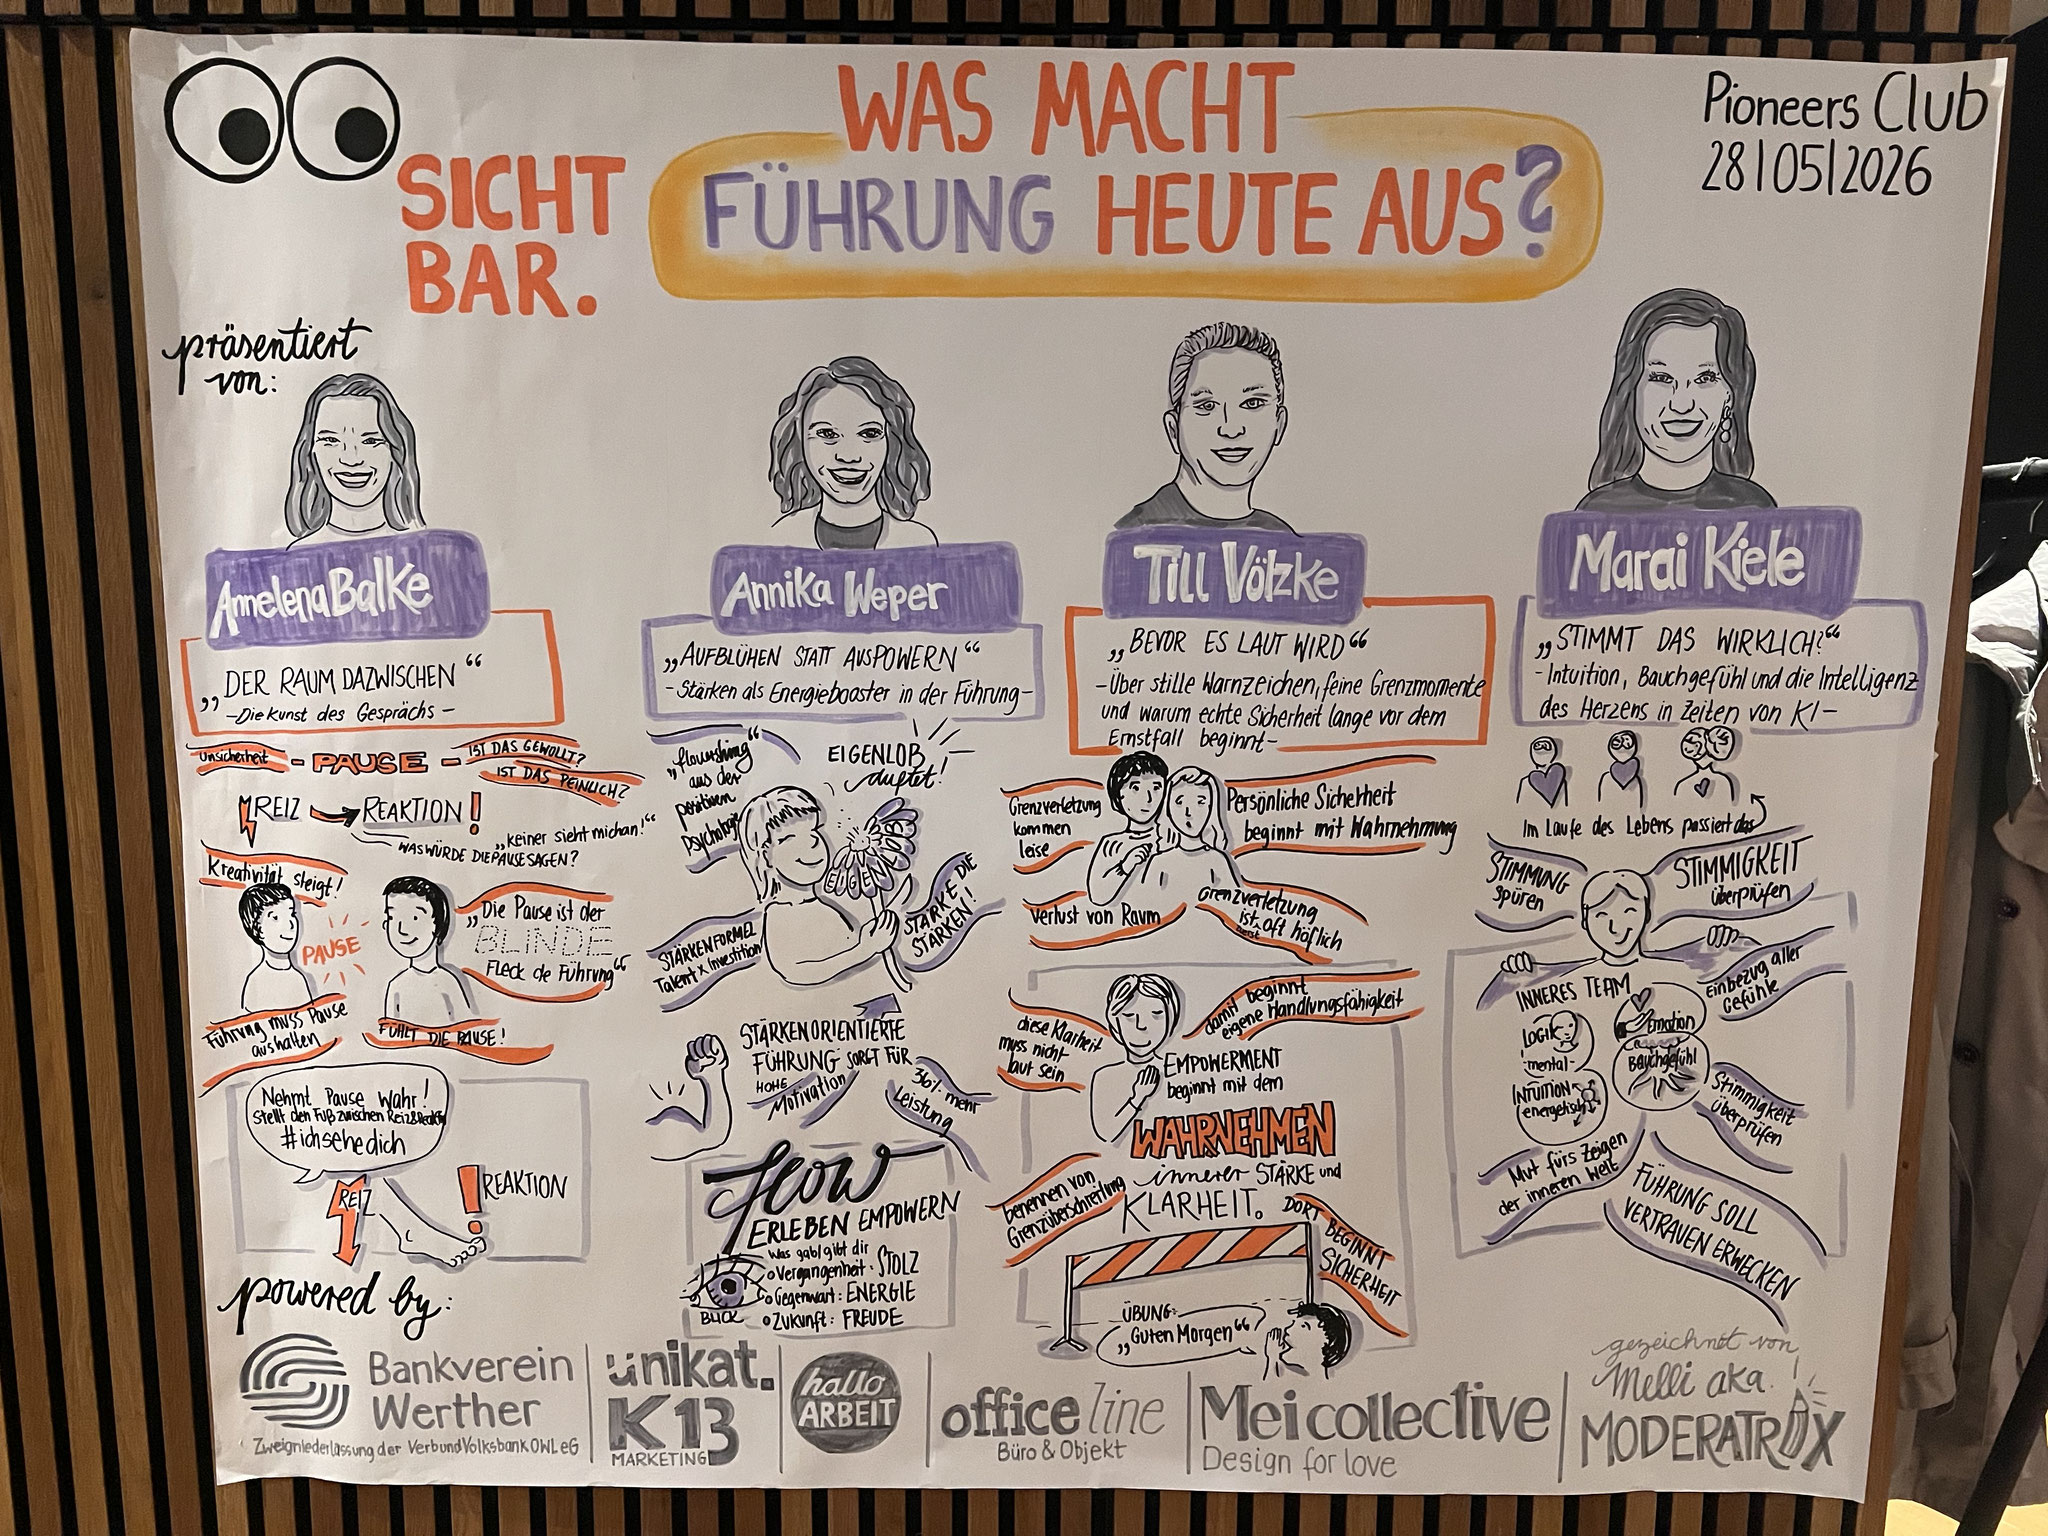 SICHT
BAR.
WAS MACHT
FÜHRUNG HEUTE AUS?
Pioneers Club
28|05|2026
präsentiert
von:
Annelena Balke
„DER RAUM DAZWISCHEN“
- Die Kunst des Gesprächs -
Unsicherheit - PAUSE - IST DAS GEWOLLT?
IST DAS PEINLICH?
REIZ → REAKTION!
„Keiner sieht mich an!“
WAS WÜRDE DIE PAUSE SAGEN?
Kreativität steigt!
PAUSE
„Die Pause ist der
BLINDE
Fleck de Führung“
Führung muss Pause
aushalten
FÜHLT DIE PAUSE!
Nehmt Pause Wahr!
Stellt den Fuß zwischen Reiz&Reaktion
#ichsehedich
REIZ
! REAKTION
Annika Weper
„AUFBLÜHEN STATT AUSPOWERN“
- Stärken als Energiebooster in der Führung -
„flourishing“
aus der
positiven
psychologie
EIGENLOB
duftet!
EIGENLOB
STÄRKE DIE
STÄRKEN!
STÄRKENFORMEL
Talent x Investition
STÄRKENORIENTIERTE
FÜHRUNG SORGT FÜR
HOHE
Motivation
36%. mehr
Leistung
flow
ERLEBEN EMPOWERN
Was gab/gibt dir
Vergangenheit: STOLZ
Gegenwart: ENERGIE
Zukunft: FREUDE
BLICK
Till Völzke
„BEVOR ES LAUT WIRD“
- Über stille Warnzeichen, feine Grenzmomente
und warum echte Sicherheit lange vor dem
Ernstfall beginnt -
Grenzverletzung
kommen
leise
Persönliche Sicherheit
beginnt mit Wahrnehmung
Verlust von Raum
Grenzverletzung
ist oft höflich
diese Klarheit
muss nicht
laut sein
damit beginnt
eigene Handlungsfähigkeit
EMPOWERMENT
beginnt mit dem
WAHRNEHMEN
innerer STÄRKE und
KLARHEIT.
benennen von
Grenzüberschreitung
DORT BEGINNT
SICHERHEIT
ÜBUNG:
„Guten Morgen“
Marai Kiele
„STIMMT DAS WIRKLICH?“
- Intuition, Bauchgefühl und die Intelligenz
des Herzens in Zeiten von KI -
Im Laufe des Lebens passiert das
STIMMUNG
spüren
STIMMIGKEIT
überprüfen
INNERES TEAM
LOGIK
-mental-
Emotion
Bauchgefühl
INTUITION
energetisch
Einbezug aller
Gefühle
Stimmigkeit
überprüfen
Mut fürs Zeigen
der inneren Welt
FÜHRUNG SOLL
VERTRAUEN ERWECKEN
powered by:
Bankverein
Werther
Zweigniederlassung der VerbundVolksbank OWL eG
ünikat.
K13
MARKETING
hallo
ARBEIT
office line
Büro & Objekt
Mei collective
Design for love
gezeichnet von
Melli aka.
MODERATRIX